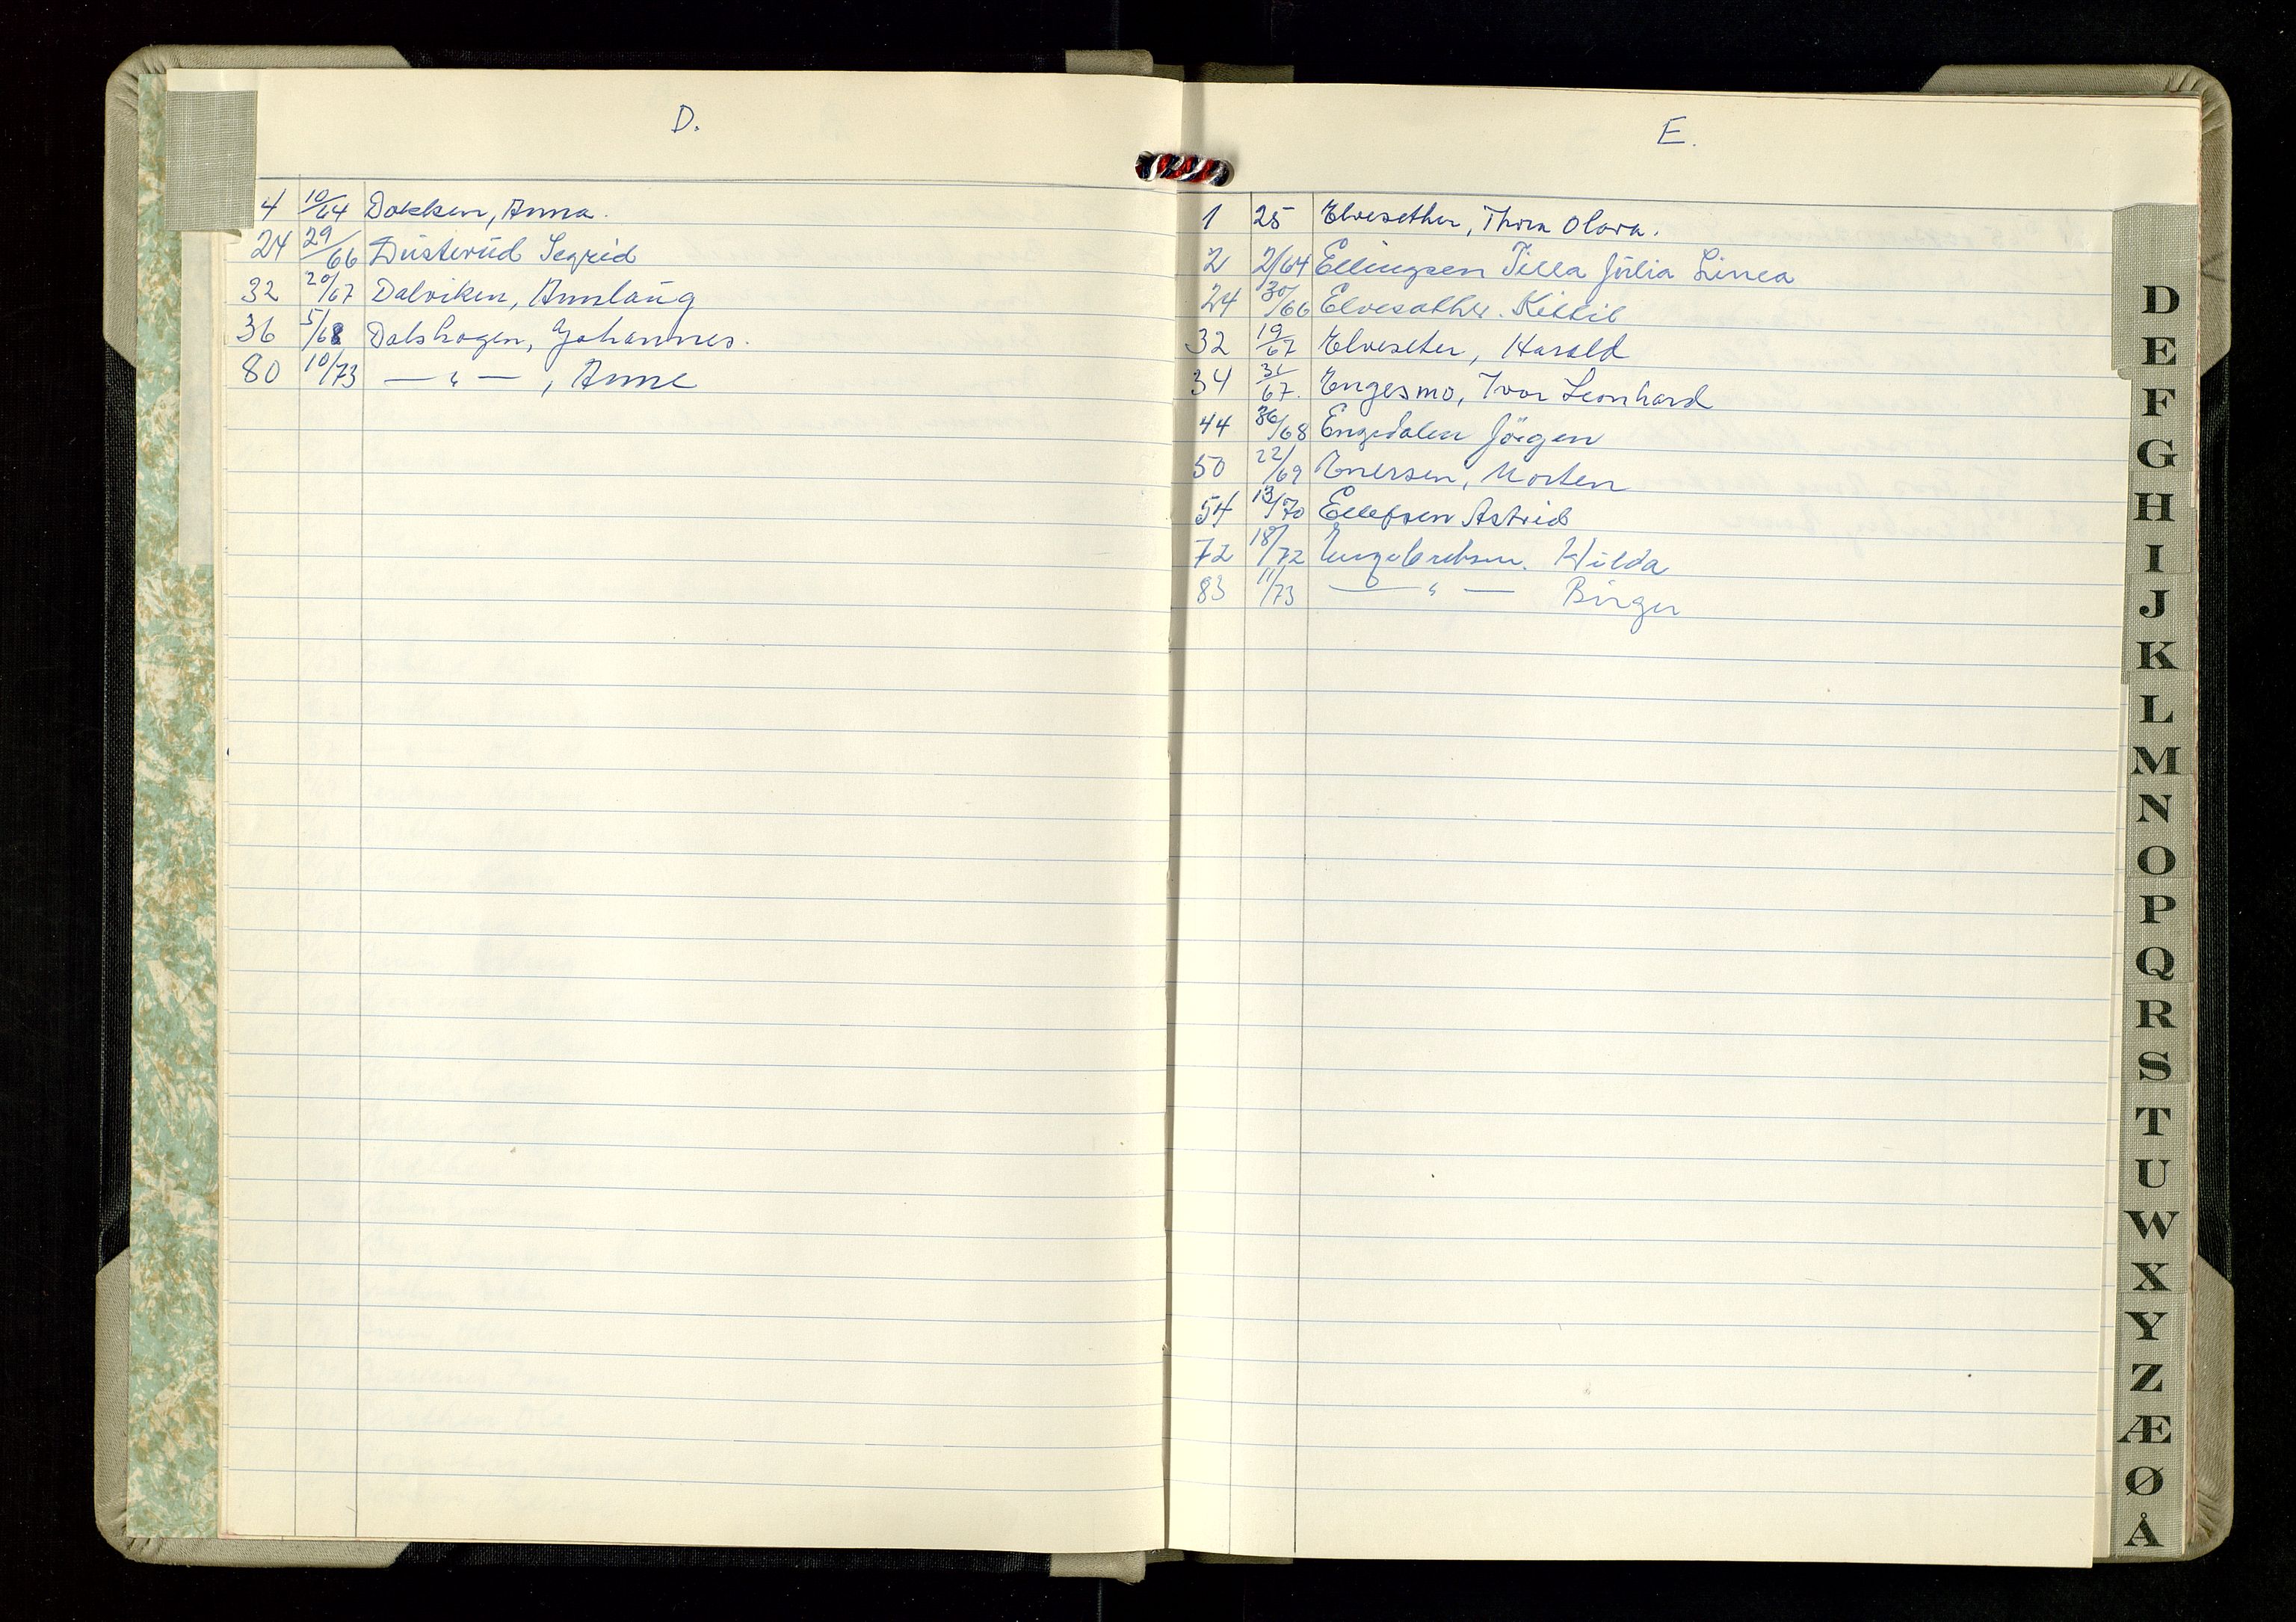 D.
4 10/64 Dokken, Anna.
24 29/66 Dusterud Segrid
32 20/67 Dalviken, Annlaug
36 5/68 Dalshagen, Johannes.
80 10/73 — " — , Anne
E.
1 25 Elvesether, Thora Olava.
2 2/64 Ellingsen Tilla Julia Linea
24 30/66 Elvesæther. Kittil
32 19/67 Elveseter, Harald
34 31/67. Engesmo, Ivar Leonhard
44 36/68 Engedalen Jörgen
50 22/69 Enersen, Morten
54 13/70 Ellefsen Astrid
72 18/72 Engebretsen. Hilda
83 11/73 — " — Birger
D
E
F
G
H
I
J
K
L
M
N
O
P
Q
R
S
T
U
W
X
Y
Z
Æ
Ø
Å